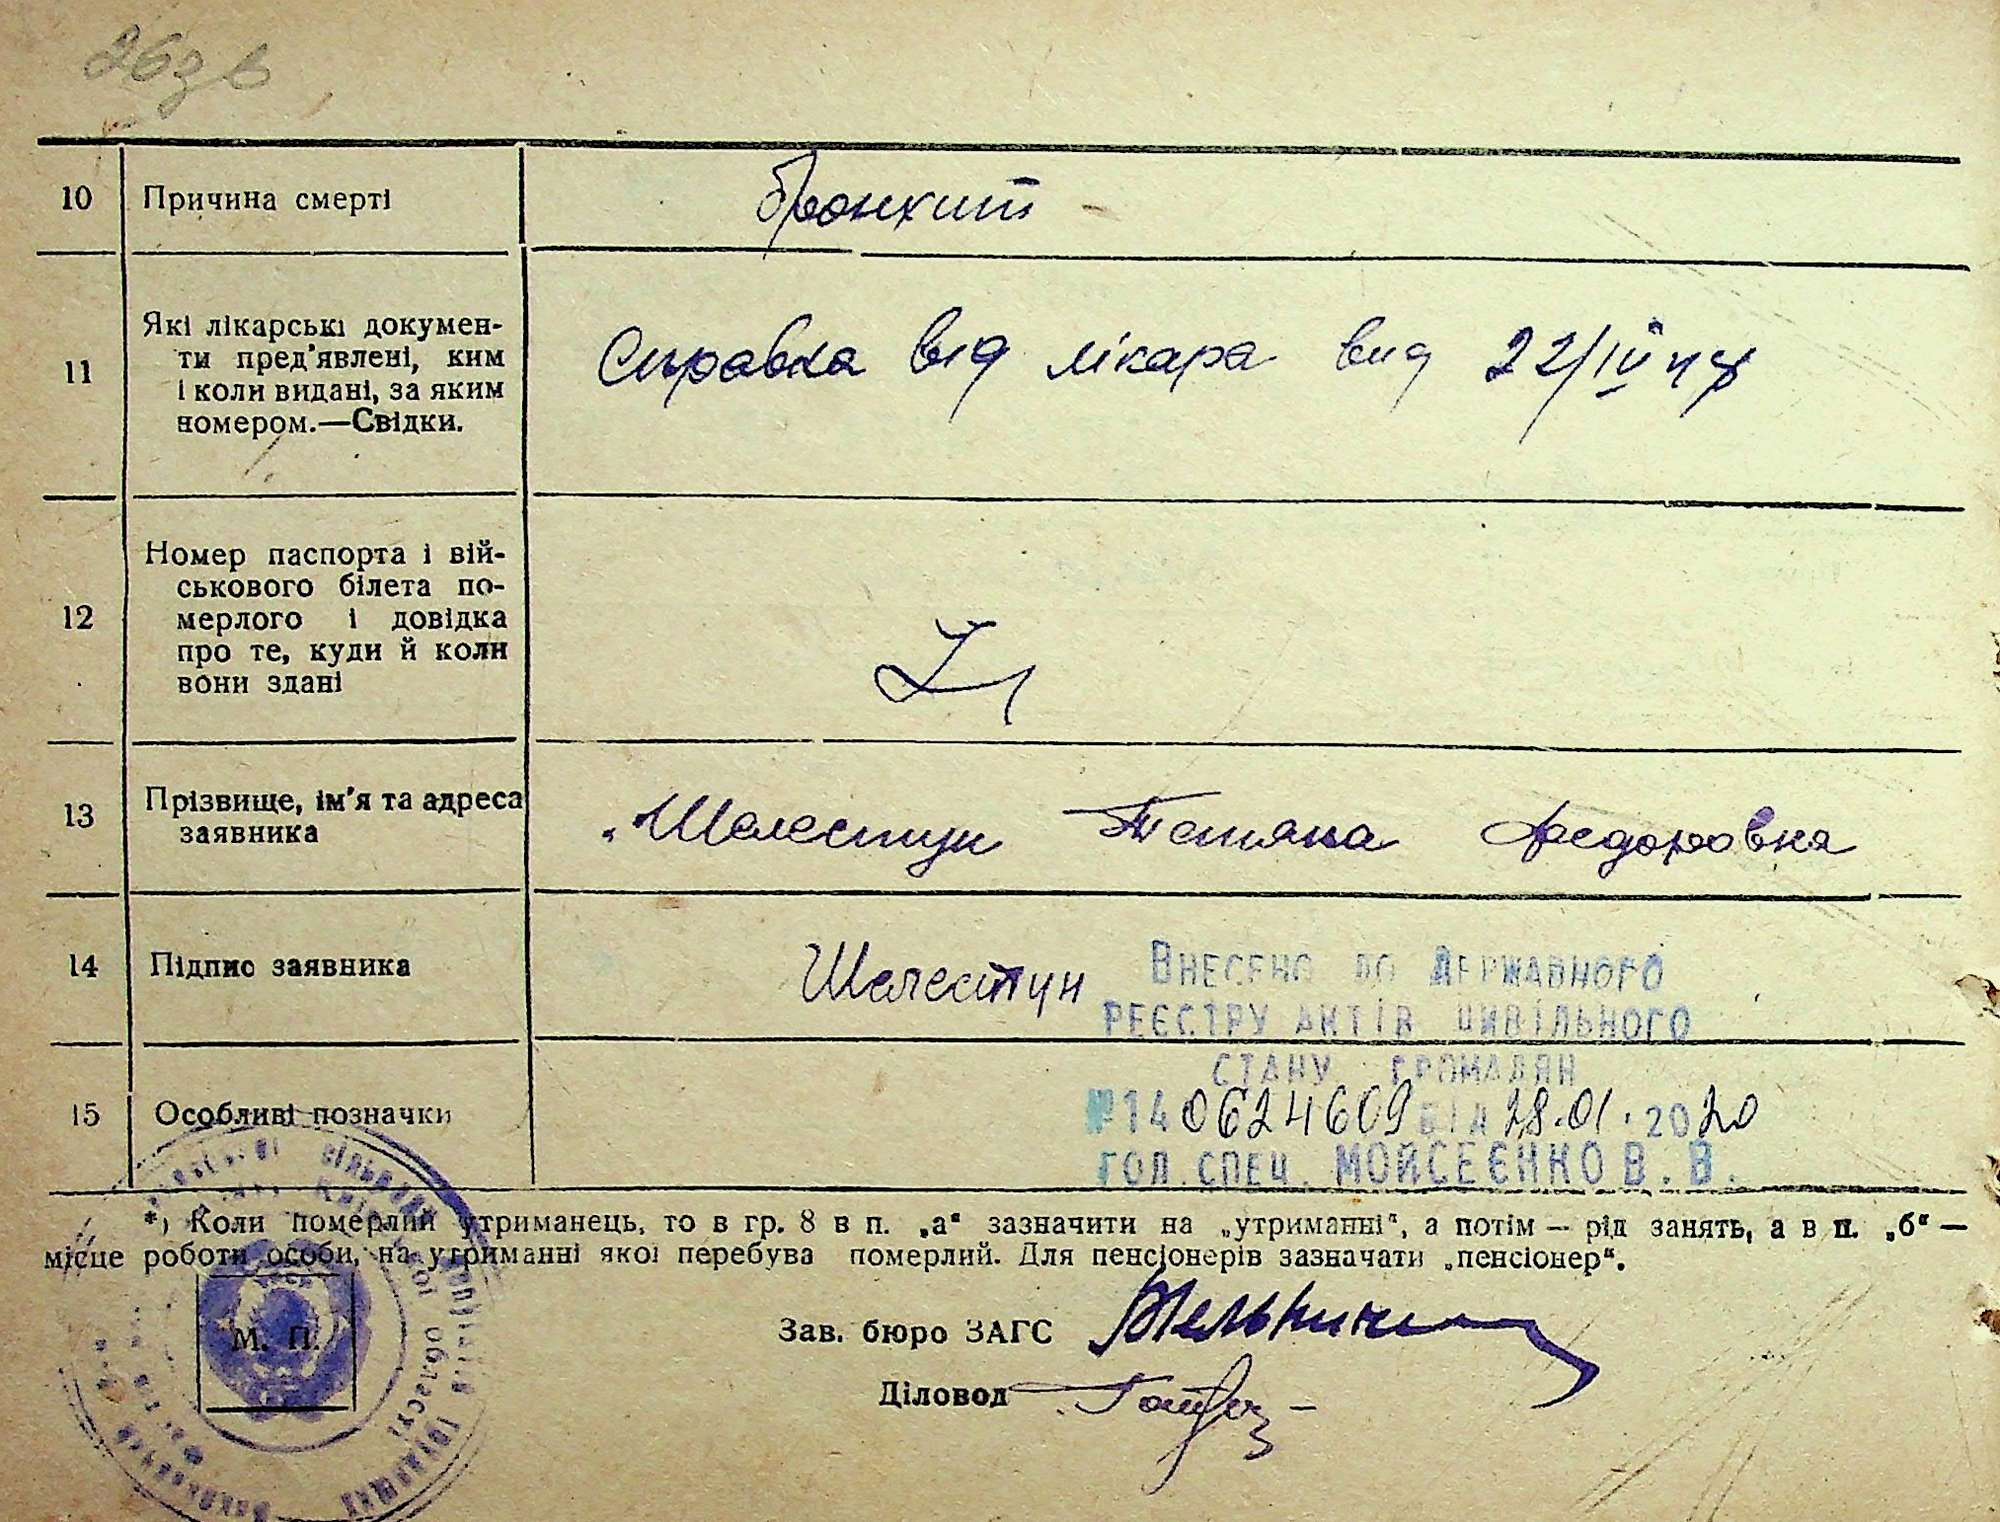 263 в
10 Причина смерті бронхит
11 Які лікарські докумен-
ти пред'явлені, ким
і коли видані, за яким
номером.—Свідки.
Справка від лікара вид 22/IV
12 Номер паспорта і вій-
ськового білета по-
мерлого і довідка
про те, куди й коли
вони здані
13 Прізвище, ім'я та адреса
заявника
Шелестун Тетяна Федоровна
14 Підпис заявника Шелестун
15 Особливі позначки
ВНЕСЕНО ДО ДЕРЖАВНОГО
РЕЄСТРУ АКТІВ ЦИВІЛЬНОГО
СТАНУ ГРОМАДЯН
№140624609 ВІД 28.01.2020
ГОЛ. СПЕЦ. МОЙСЕЄНКО В. В.
*) Коли померлий утриманець, то в гр. 8 в п. „а“ зазначити на „утриманні“, а потім — рід занять, а в п. „б“ —
місце роботи особи, на утриманні якої перебува померлий. Для пенсіонерів зазначати „пенсіонер“.
М. П.
області
Зав. бюро ЗАГС
Діловод